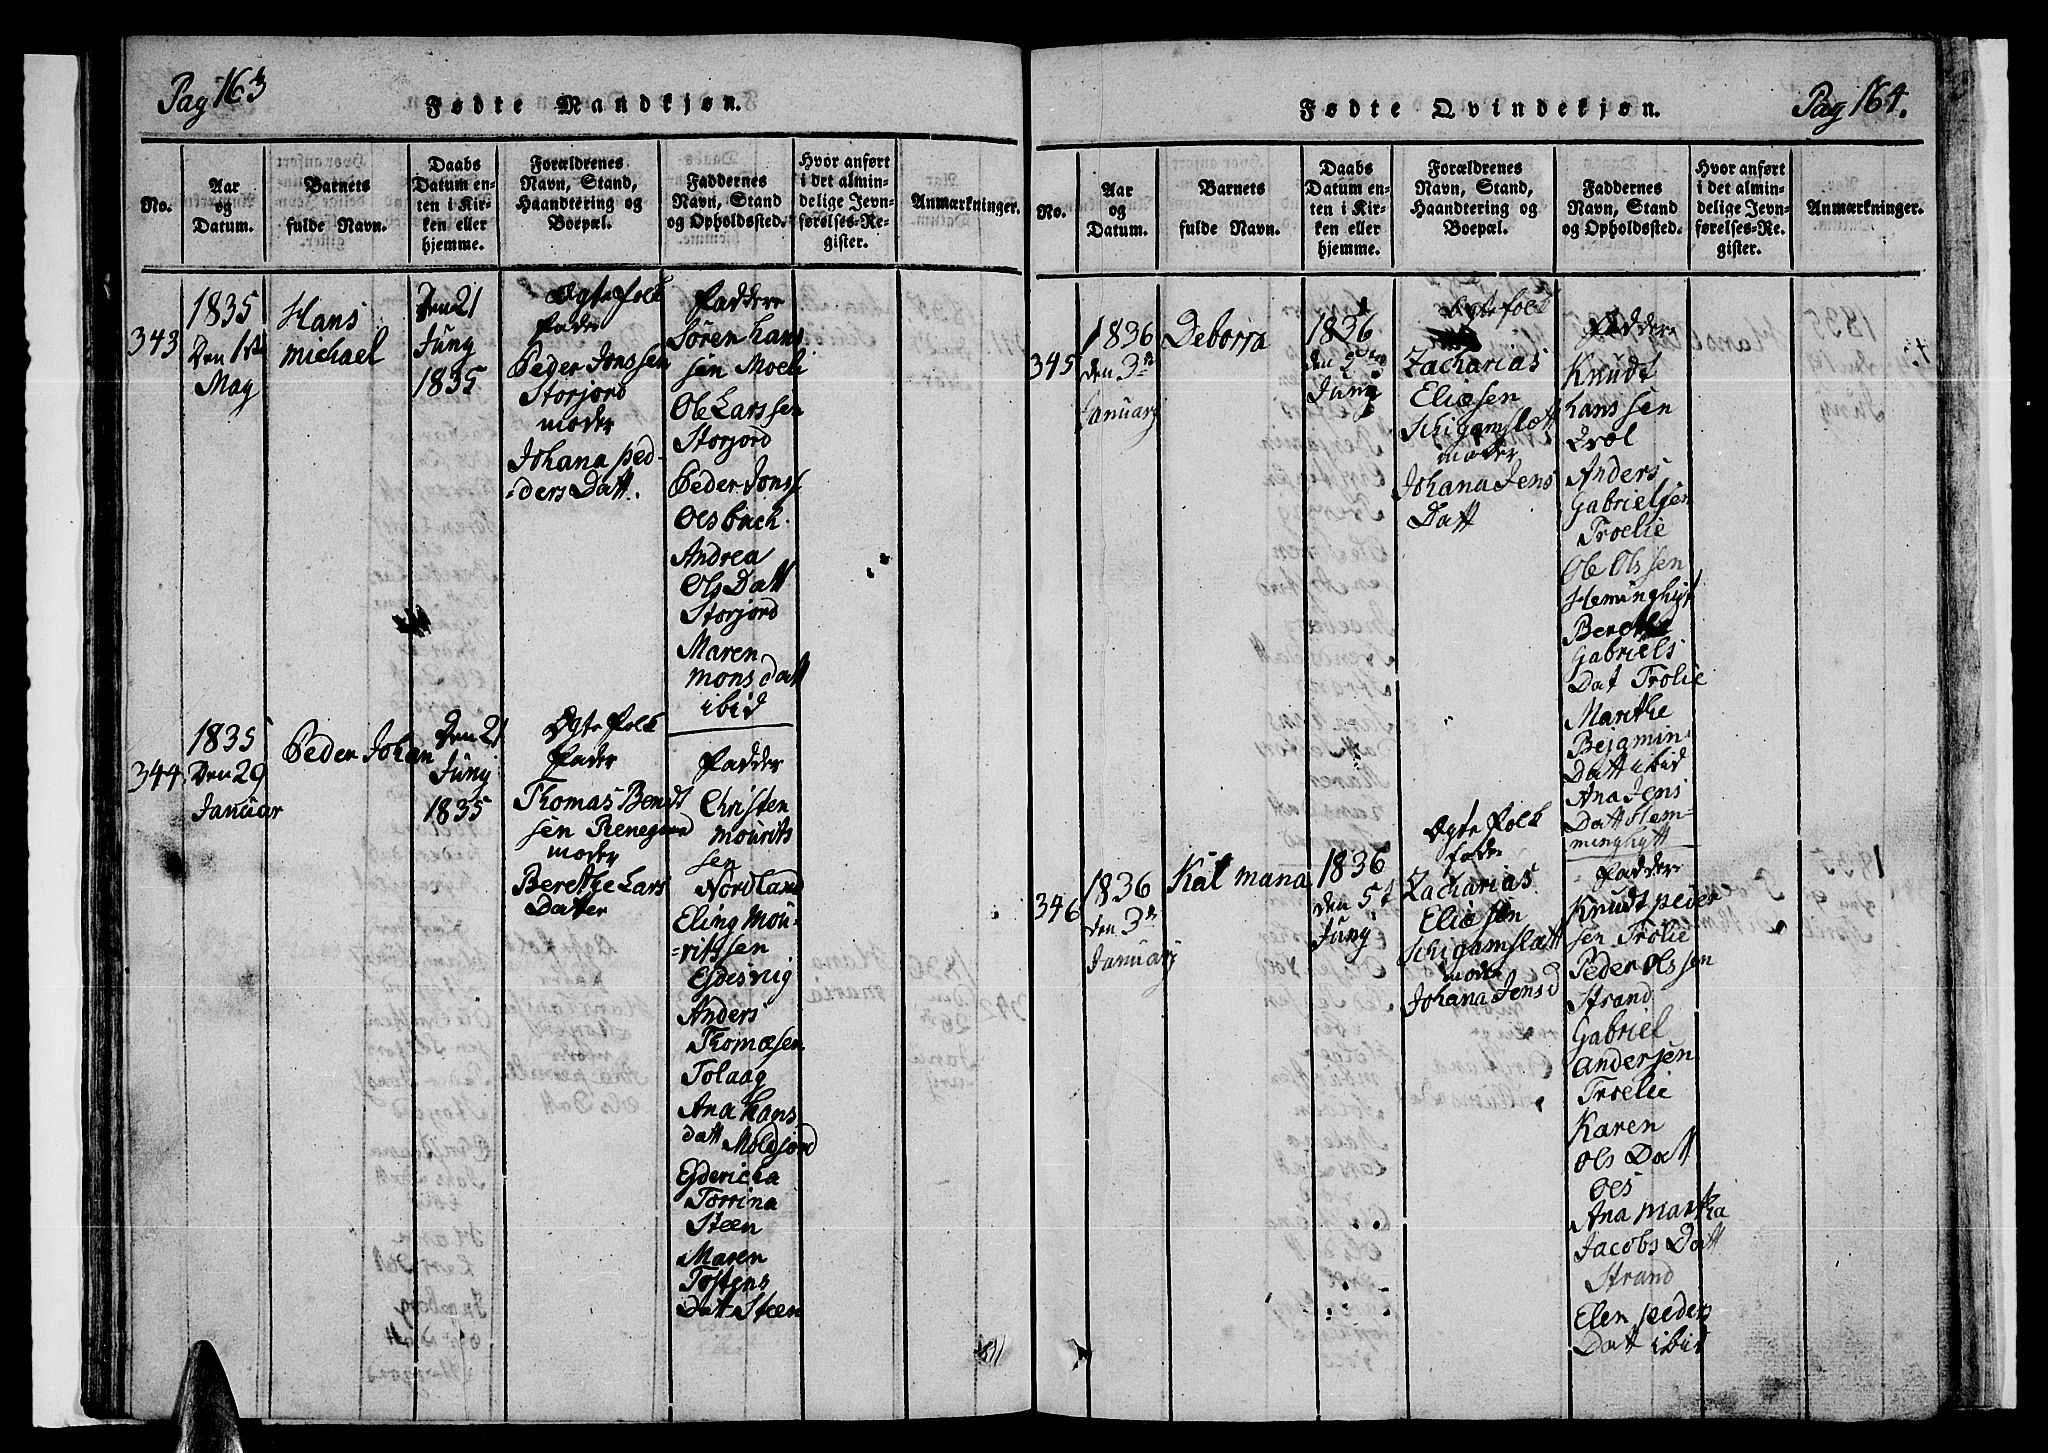 Pag 163
Fødte Mandkjøn.
No.
Aar
og
Datum.
Barnets
fulde Navn.
Daabs
Datum en-
ten i Kir-
ken eller
hjemme.
Forældrenes
Navn, Stand,
Haandtering og
Boepæl.
Faddernes
Navn, Stand
og Opholdssted.
Hvor anført
i det almin-
delige Jevn-
førelses-Re-
gister.
Anmærkninger.
343
1835
Den 1ste
May
Hans
Michael
Den 21
Juny
1835
Ægte folk
Fader
Peder Jonssen
Storjord
moder
Johana Ped-
ders Datt.
Faddere
Søren Hans
sen Moeli
Ole Larssen
Storjord
Peder Jonss
Olsbach
Andrea
Ols Datt
Storjord
Maren
Mons Datt
ibid
344
1835
Den 29
Januar
Peder Johan
Den 21
Juny
1835
Ægte folk
Fader
Thomas Bendt
sen Renegaard
moder
Berethe Lars
Datter
Fadder
Christen
Mourits
sen
Nordland
Eling Mou-
ritssen
Ejdesvig
Anders
Thomæsen
Tolaag
Ana Hans
datt Moldjord
Ejdericka
Torrina
Steen
Maren
Tostens
Datt Steen
Pag 164.
Fødte Qvindekjøn.
No.
Aar
og
Datum.
Barnets
fulde Navn.
Daabs
Datum en-
ten i Kir-
ken eller
hjemme.
Forældrenes
Navn, Stand,
Haandtering og
Boepæl.
Faddernes
Navn, Stand
og Opholdssted.
Hvor anført
i det almin-
delige Jevn-
førelses-Re-
gister.
Anmærkninger.
345
1836
den 3die
January
Deborra
1836
den 2den
Juny
Ægte folk
Zacharias
Eliesen
Schigamslætt
moder
Johana Jens
Datt
Faddere
Knudt
Hanssen
Evæl
Anders
Gabrielsen
Troelie
Ole Olssen
Heminghyt
Berethe
Gabriels
Dat Trolie
Marithe
Bejgmin
Datt ibid
Ana Jens
Datt Hem-
minghytt
346
1836
den 3die
January
Kat mana
1836
den 5t
Juny
Ægte folk
fader
Zacharias
Eliesen
Schigamslætt
moder
Johana Jensd
Faddere
Knudt Peder
sen Trolie
Peder Olssen
Strand
Gabriel
Andersen
Troelie
Karen
Ols Datt
Oes
Ana Martha
Jacobs Datt
Strand
Elen Peders
Datt ibid